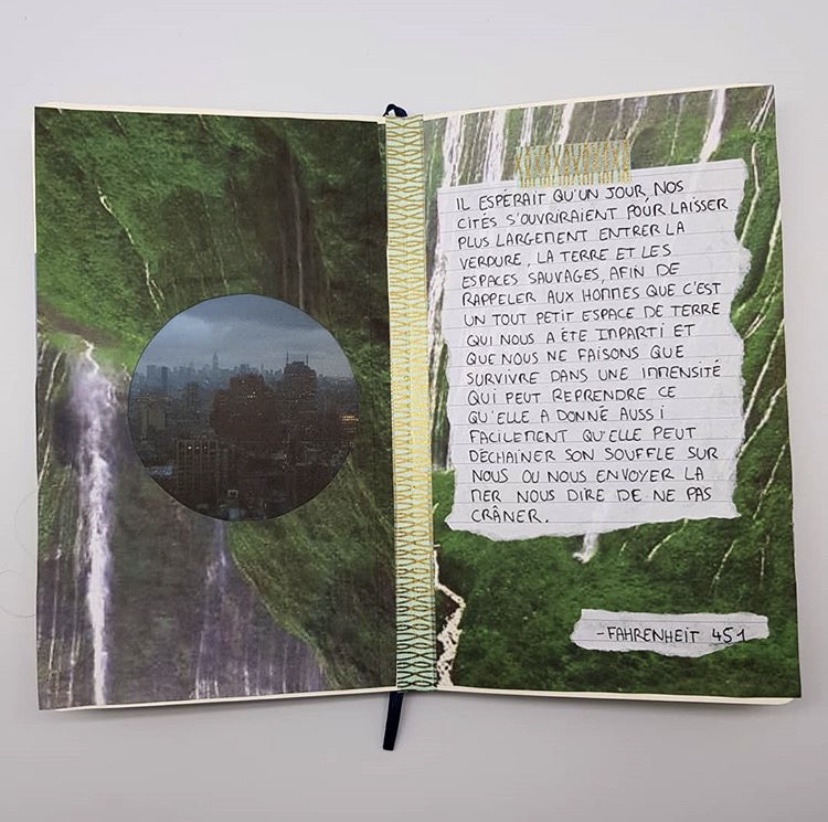 IL ESPÉRAIT QU'UN JOUR, NOS
CITÉS S'OUVRIRAIENT POUR LAISSER
PLUS LARGEMENT ENTRER LA
VERDURE, LA TERRE ET LES
ESPACES SAUVAGES, AFIN DE
RAPPELER AUX HOMMES QUE C'EST
UN TOUT PETIT ESPACE DE TERRE
QUI NOUS A ÉTÉ IMPARTI ET
QUE NOUS NE FAISONS QUE
SURVIVRE DANS UNE IMMENSITÉ
QUI PEUT REPRENDRE CE
QU'ELLE A DONNÉ AUSSI
FACILEMENT QU'ELLE PEUT
DÉCHAÎNER SON SOUFFLE SUR
NOUS OU NOUS ENVOYER LA
MER NOUS DIRE DE NE PAS
CRÂNER.
-FAHRENHEIT 451